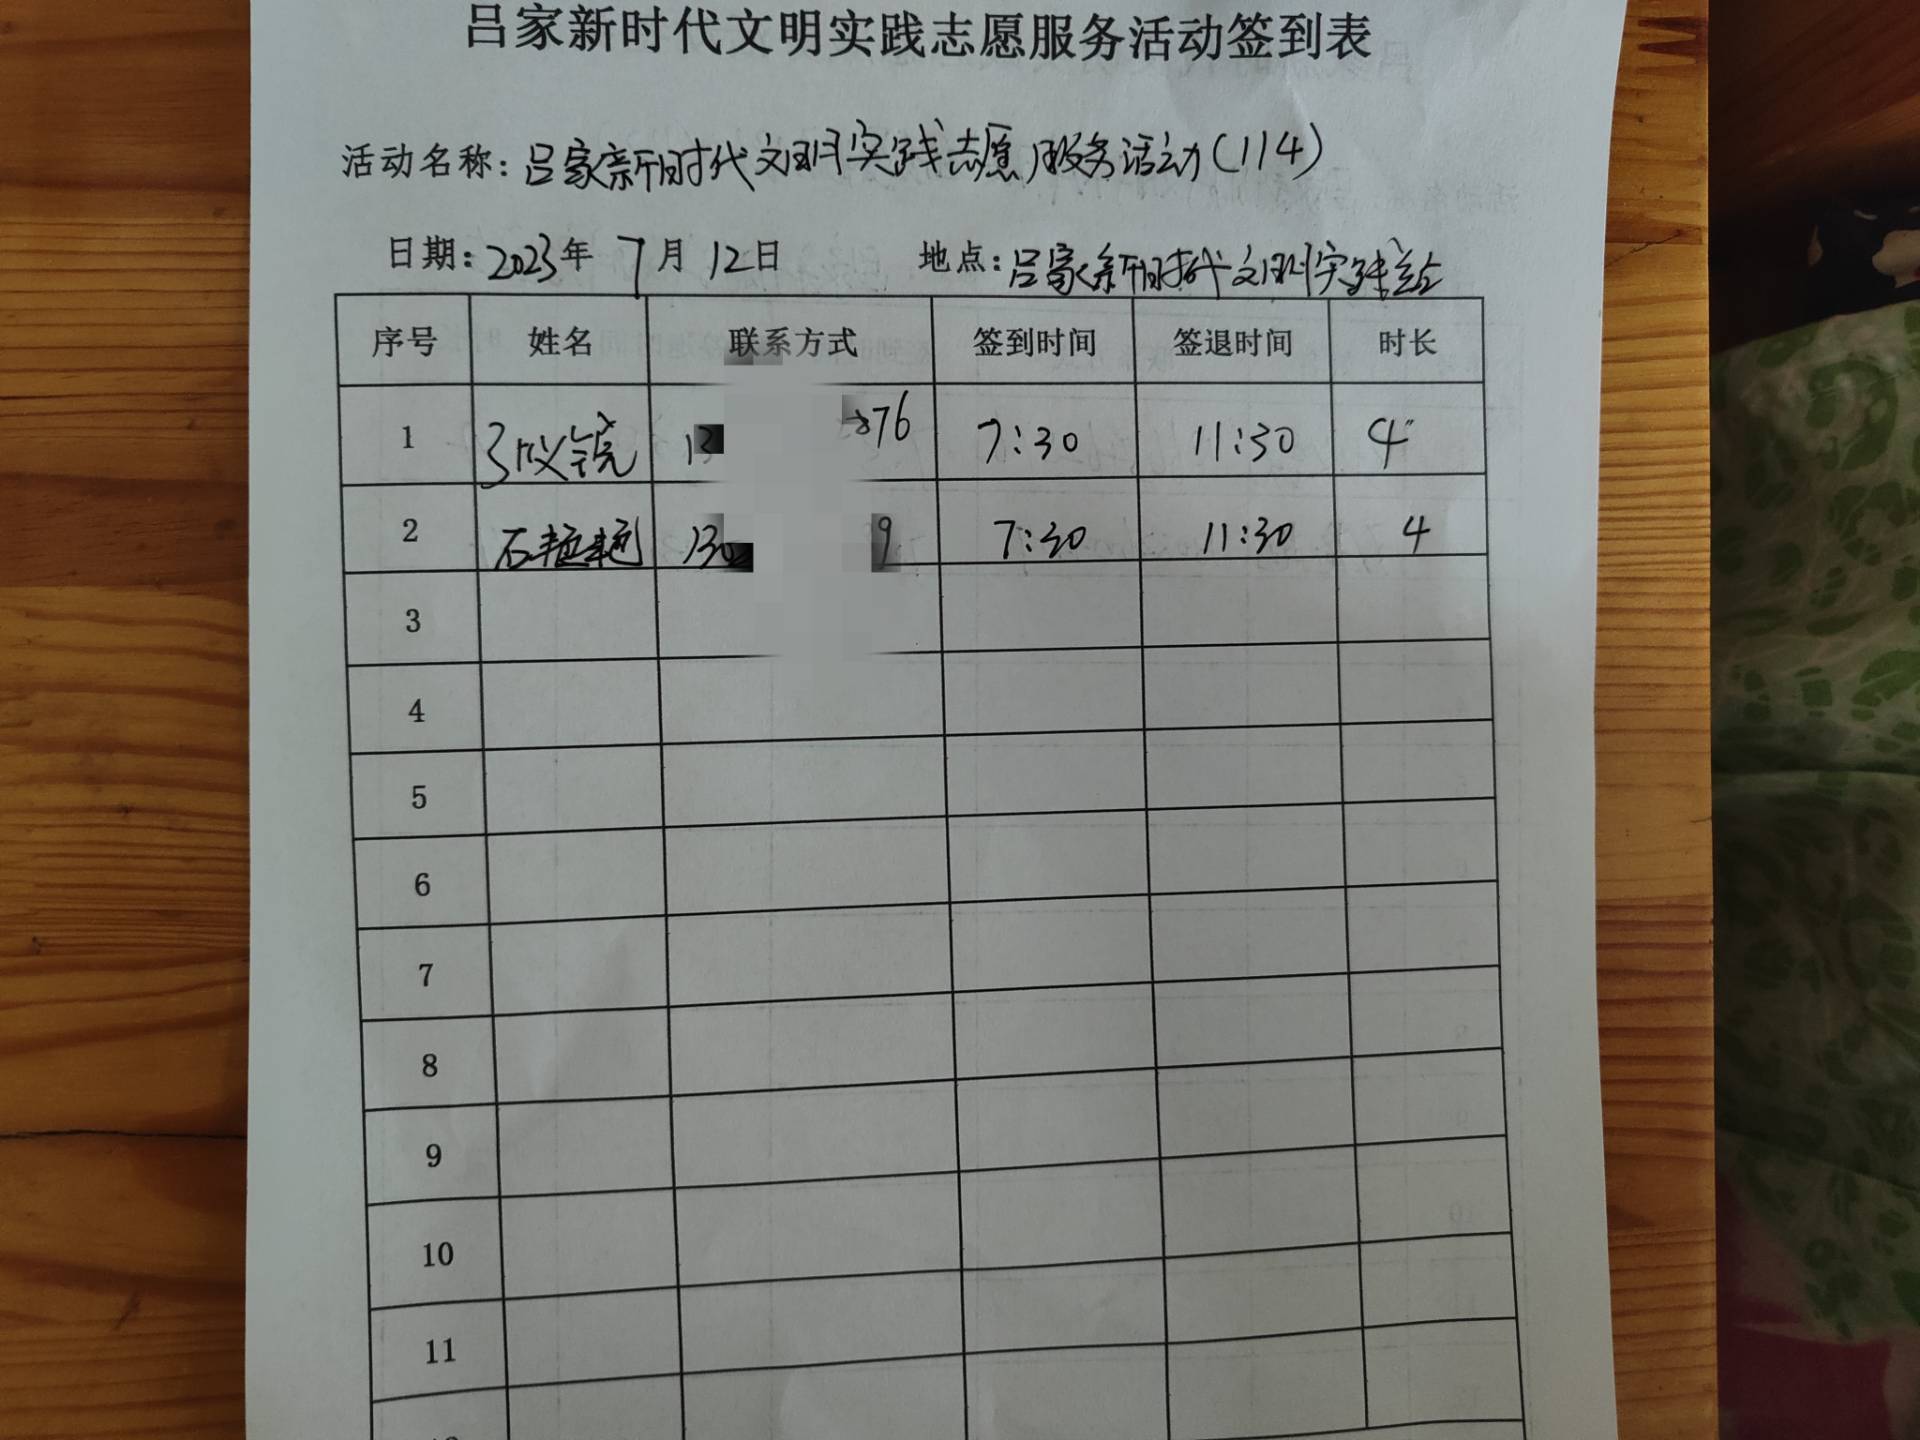 吕家新时代文明实践志愿服务活动签到表
活动名称：吕家新时代文明实践志愿服务活动（114）
日期：2023年 7月 12日 地点：吕家新时代文明实践站
序号 姓名 联系方式 签到时间 签退时间 时长
1 13 76 7:30 11:30 4
2 石艳艳 130 9 7:30 11:30 4
3
4
5
6
7
8
9
10
11